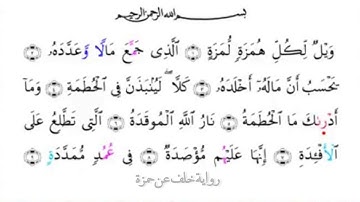 بسم الله الرحمن الرحيم
وَيْلٌ لِّكُلِّ هُمَزَةٍ لُّمَزَةٍ ١ ٱلَّذِى جَمَّعَ مَالًا وَعَدَّدَهُۥ ٢
يَحْسَبُ أَنَّ مَالَهُۥٓ أَخْلَدَهُۥ ٣ كَلَّا ۖ لَيُنۢبَذَنَّ فِى ٱلْحُطَمَةِ ٤ وَمَآ
أَدْرَىٰكَ مَا ٱلْحُطَمَةُ ٥ نَارُ ٱللَّهِ ٱلْمُوقَدَةُ ٦ ٱلَّتِى تَطَّلِعُ عَلَى
ٱلْأَفْـِٔدَةِ ٧ إِنَّهَا عَلَيْهُم مُّؤْصَدَةٌ ٨ فِى عُمُدٍ مُّمَدَّدَةٍ ٩
رواية خلف عن حمزة